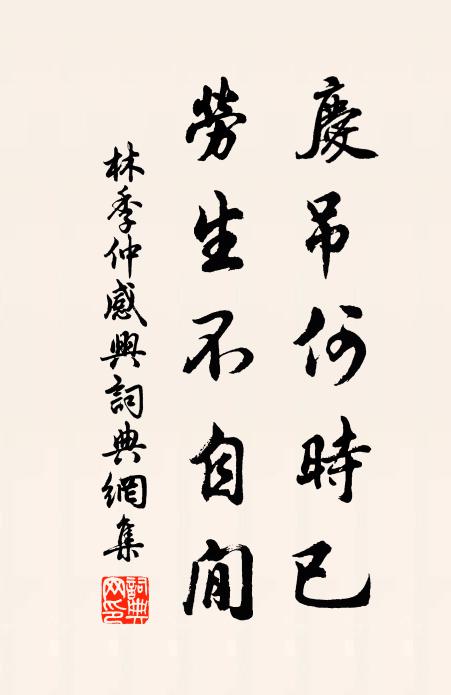 慶吊何時已
勞生不自閒
林季仲感興詞典網集
詞典网印